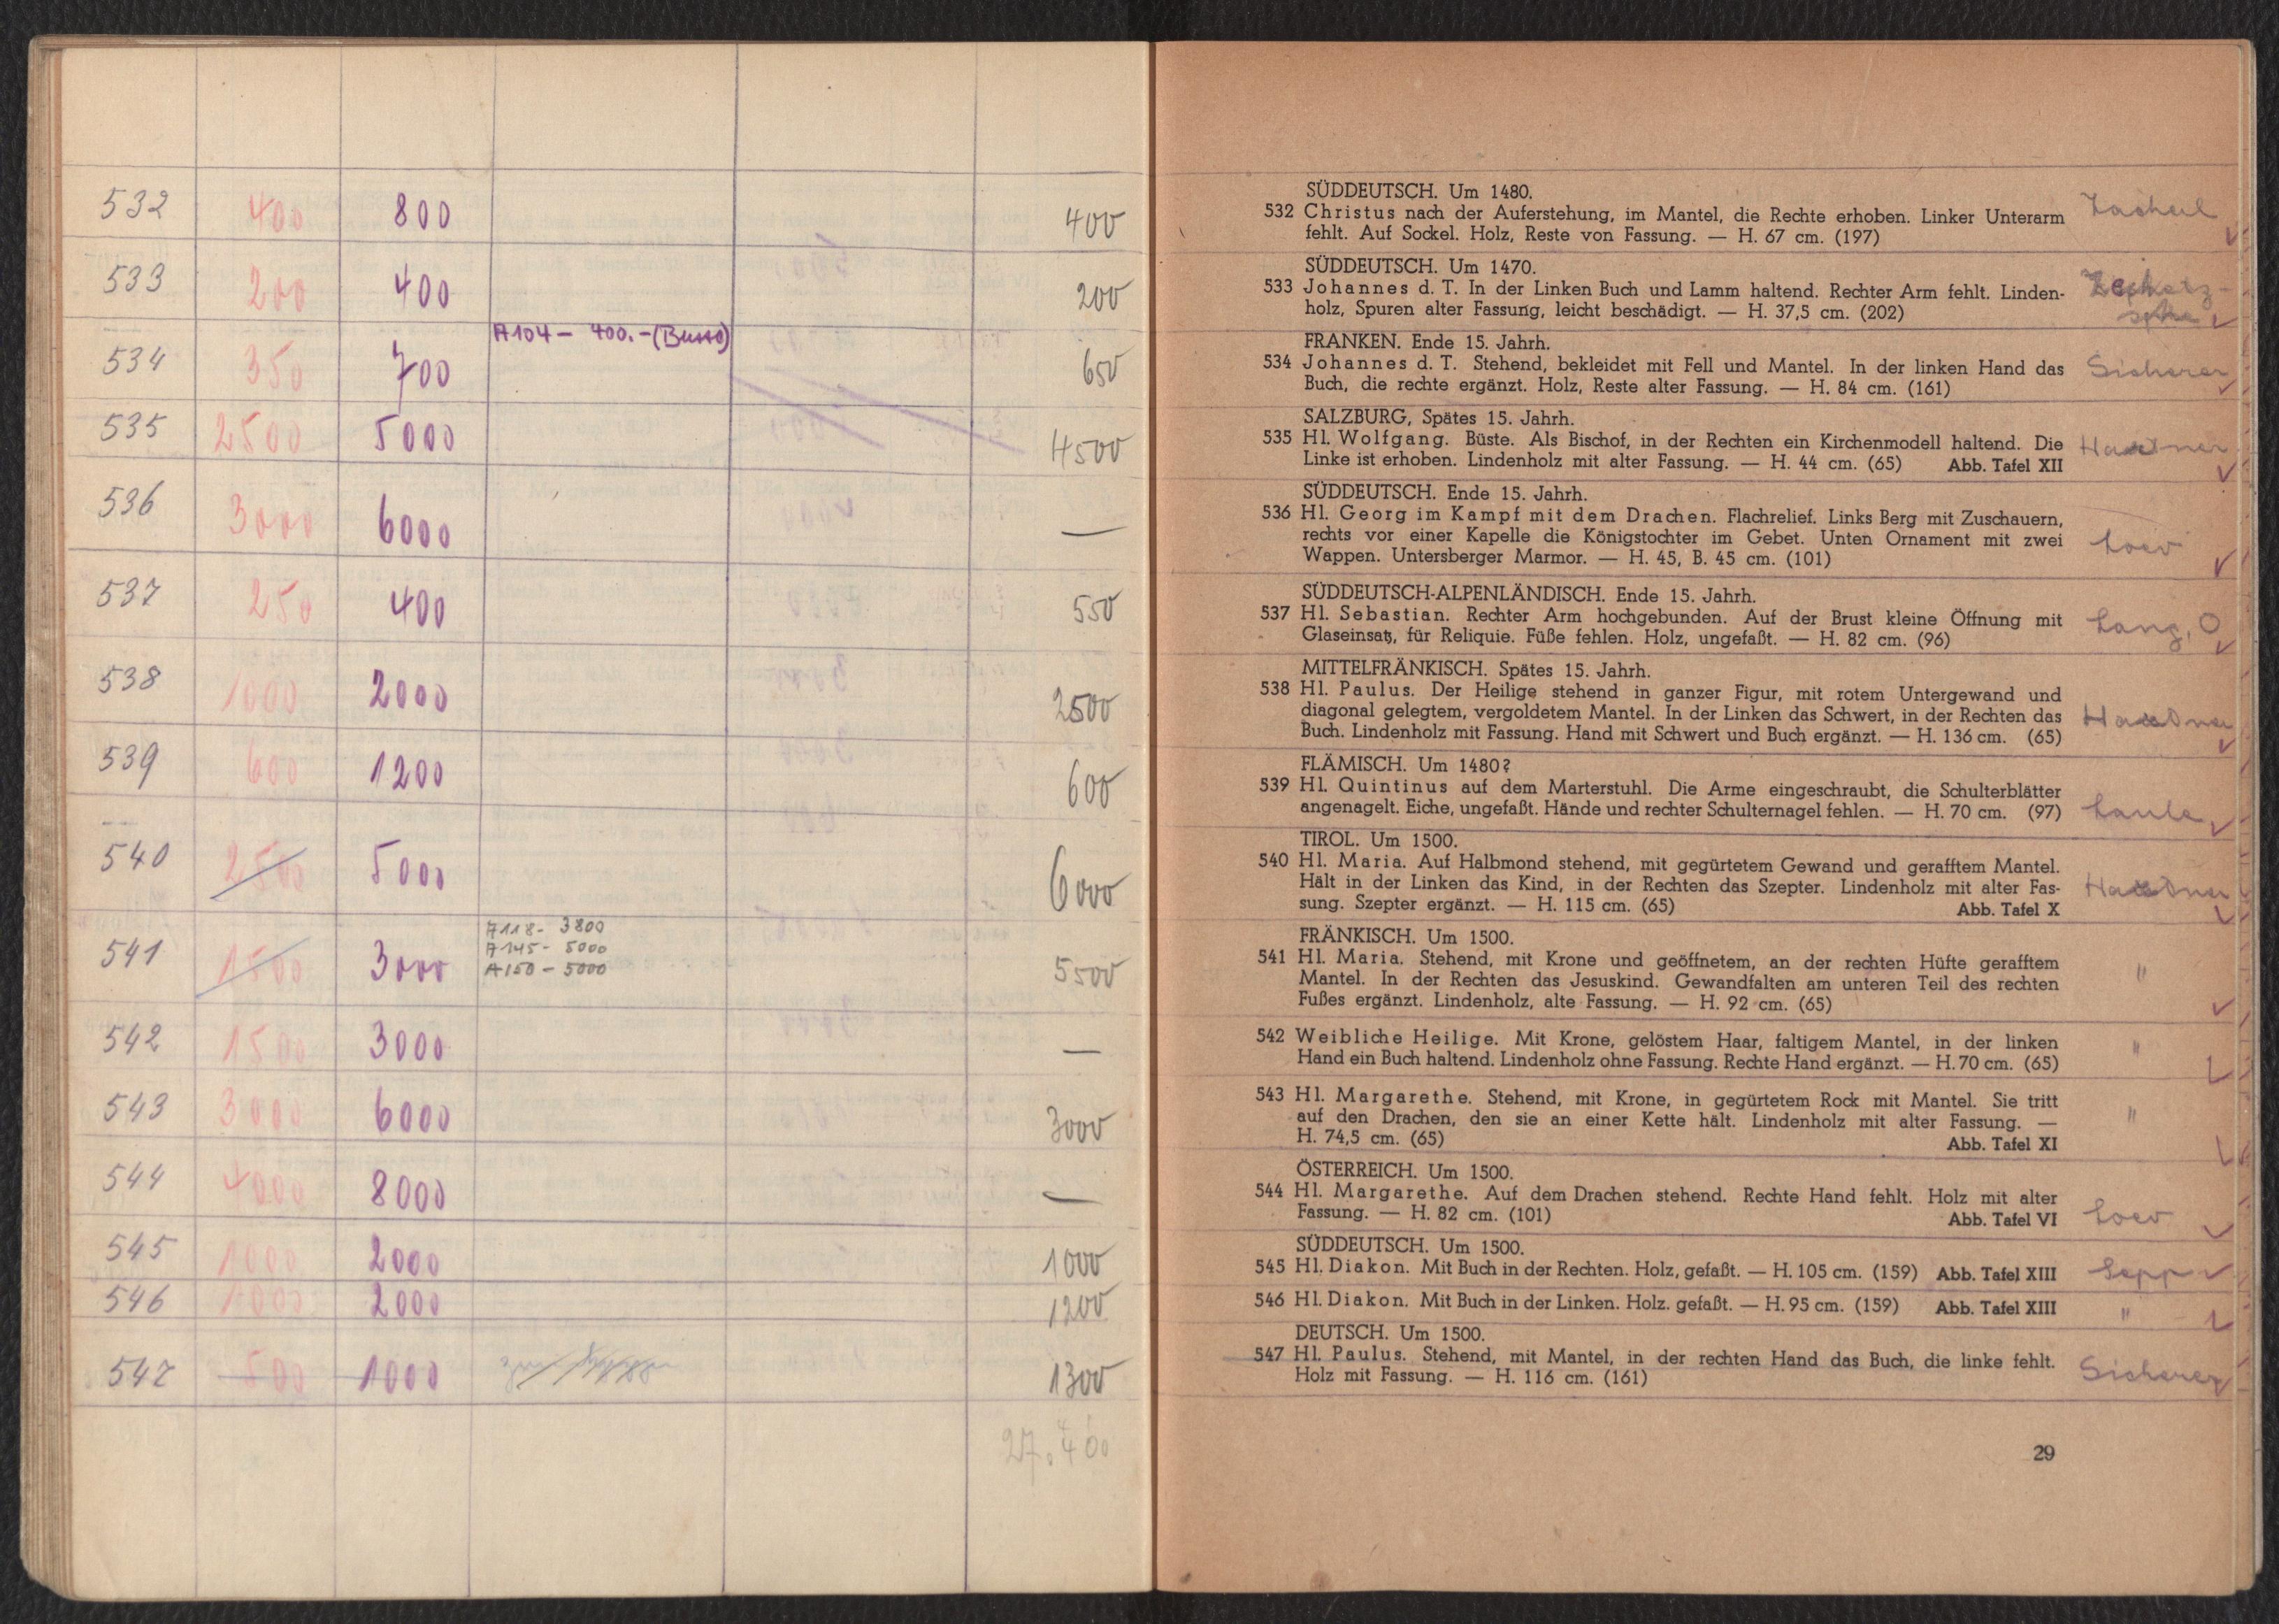 532 400 800 400
533 200 400 200
A104 – 400.–
534 350 700 650
535 2500 5000 4500
536 3000 6000 —
537 250 400 550
538 1000 2000 2500
539 600 1200 600
540 2500 5000 6000
A118 - 3800
A145 - 5000
A150 - 5000
541 1500 3000 5500
542 1500 3000 —
543 3000 6000 3000
544 4000 8000 —
545 1000 2000 1000
546 1000 2000 1200
547 500 1000 1300
27.400
SÜDDEUTSCH. Um 1480.
532 Christus nach der Auferstehung, im Mantel, die Rechte erhoben. Linker Unterarm
fehlt. Auf Sockel. Holz, Reste von Fassung. — H. 67 cm. (197)
SÜDDEUTSCH. Um 1470.
533 Johannes d. T. In der Linken Buch und Lamm haltend. Rechter Arm fehlt. Linden-
holz, Spuren alter Fassung, leicht beschädigt. — H. 37,5 cm. (202)
FRANKEN. Ende 15. Jahrh.
534 Johannes d. T. Stehend, bekleidet mit Fell und Mantel. In der linken Hand das Sicherer
Buch, die rechte ergänzt. Holz, Reste alter Fassung. — H. 84 cm. (161)
SALZBURG, Spätes 15. Jahrh.
535 Hl. Wolfgang. Büste. Als Bischof, in der Rechten ein Kirchenmodell haltend. Die
Linke ist erhoben. Lindenholz mit alter Fassung. — H. 44 cm. (65) Abb. Tafel XII
SÜDDEUTSCH. Ende 15. Jahrh.
536 Hl. Georg im Kampf mit dem Drachen. Flachrelief. Links Berg mit Zuschauern,
rechts vor einer Kapelle die Königstochter im Gebet. Unten Ornament mit zwei Loev
Wappen. Untersberger Marmor. — H. 45, B. 45 cm. (101)
SÜDDEUTSCH-ALPENLÄNDISCH. Ende 15. Jahrh.
537 Hl. Sebastian. Rechter Arm hochgebunden. Auf der Brust kleine Öffnung mit Lang, O
Glaseinsatz, für Reliquie. Füße fehlen. Holz, ungefaßt. — H. 82 cm. (96)
MITTELFRÄNKISCH. Spätes 15. Jahrh.
538 Hl. Paulus. Der Heilige stehend in ganzer Figur, mit rotem Untergewand und
diagonal gelegtem, vergoldetem Mantel. In der Linken das Schwert, in der Rechten das
Buch. Lindenholz mit Fassung. Hand mit Schwert und Buch ergänzt. — H. 136 cm. (65)
FLÄMISCH. Um 1480?
539 Hl. Quintinus auf dem Marterstuhl. Die Arme eingeschraubt, die Schulterblätter
angenagelt. Eiche, ungefaßt. Hände und rechter Schulternagel fehlen. — H. 70 cm. (97)
TIROL. Um 1500.
540 Hl. Maria. Auf Halbmond stehend, mit gegürtetem Gewand und gerafftem Mantel.
Hält in der Linken das Kind, in der Rechten das Szepter. Lindenholz mit alter Fas-
sung. Szepter ergänzt. — H. 115 cm. (65) Abb. Tafel X
FRÄNKISCH. Um 1500.
541 Hl. Maria. Stehend, mit Krone und geöffnetem, an der rechten Hüfte gerafftem "
Mantel. In der Rechten das Jesuskind. Gewandfalten am unteren Teil des rechten
Fußes ergänzt. Lindenholz, alte Fassung. — H. 92 cm. (65)
542 Weibliche Heilige. Mit Krone, gelöstem Haar, faltigem Mantel, in der linken "
Hand ein Buch haltend. Lindenholz ohne Fassung. Rechte Hand ergänzt. — H. 70 cm. (65)
543 Hl. Margarethe. Stehend, mit Krone, in gegürtetem Rock mit Mantel. Sie tritt
auf den Drachen, den sie an einer Kette hält. Lindenholz mit alter Fassung. — "
H. 74,5 cm. (65) Abb. Tafel XI
ÖSTERREICH. Um 1500.
544 Hl. Margarethe. Auf dem Drachen stehend. Rechte Hand fehlt. Holz mit alter
Fassung. — H. 82 cm. (101) Abb. Tafel VI Loev
SÜDDEUTSCH. Um 1500.
545 Hl. Diakon. Mit Buch in der Rechten. Holz, gefaßt. — H. 105 cm. (159) Abb. Tafel XIII Sepp
546 Hl. Diakon. Mit Buch in der Linken. Holz. gefaßt. — H. 95 cm. (159) Abb. Tafel XIII "
DEUTSCH. Um 1500.
547 Hl. Paulus. Stehend, mit Mantel, in der rechten Hand das Buch, die linke fehlt. Sicherer
Holz mit Fassung. — H. 116 cm. (161)
29